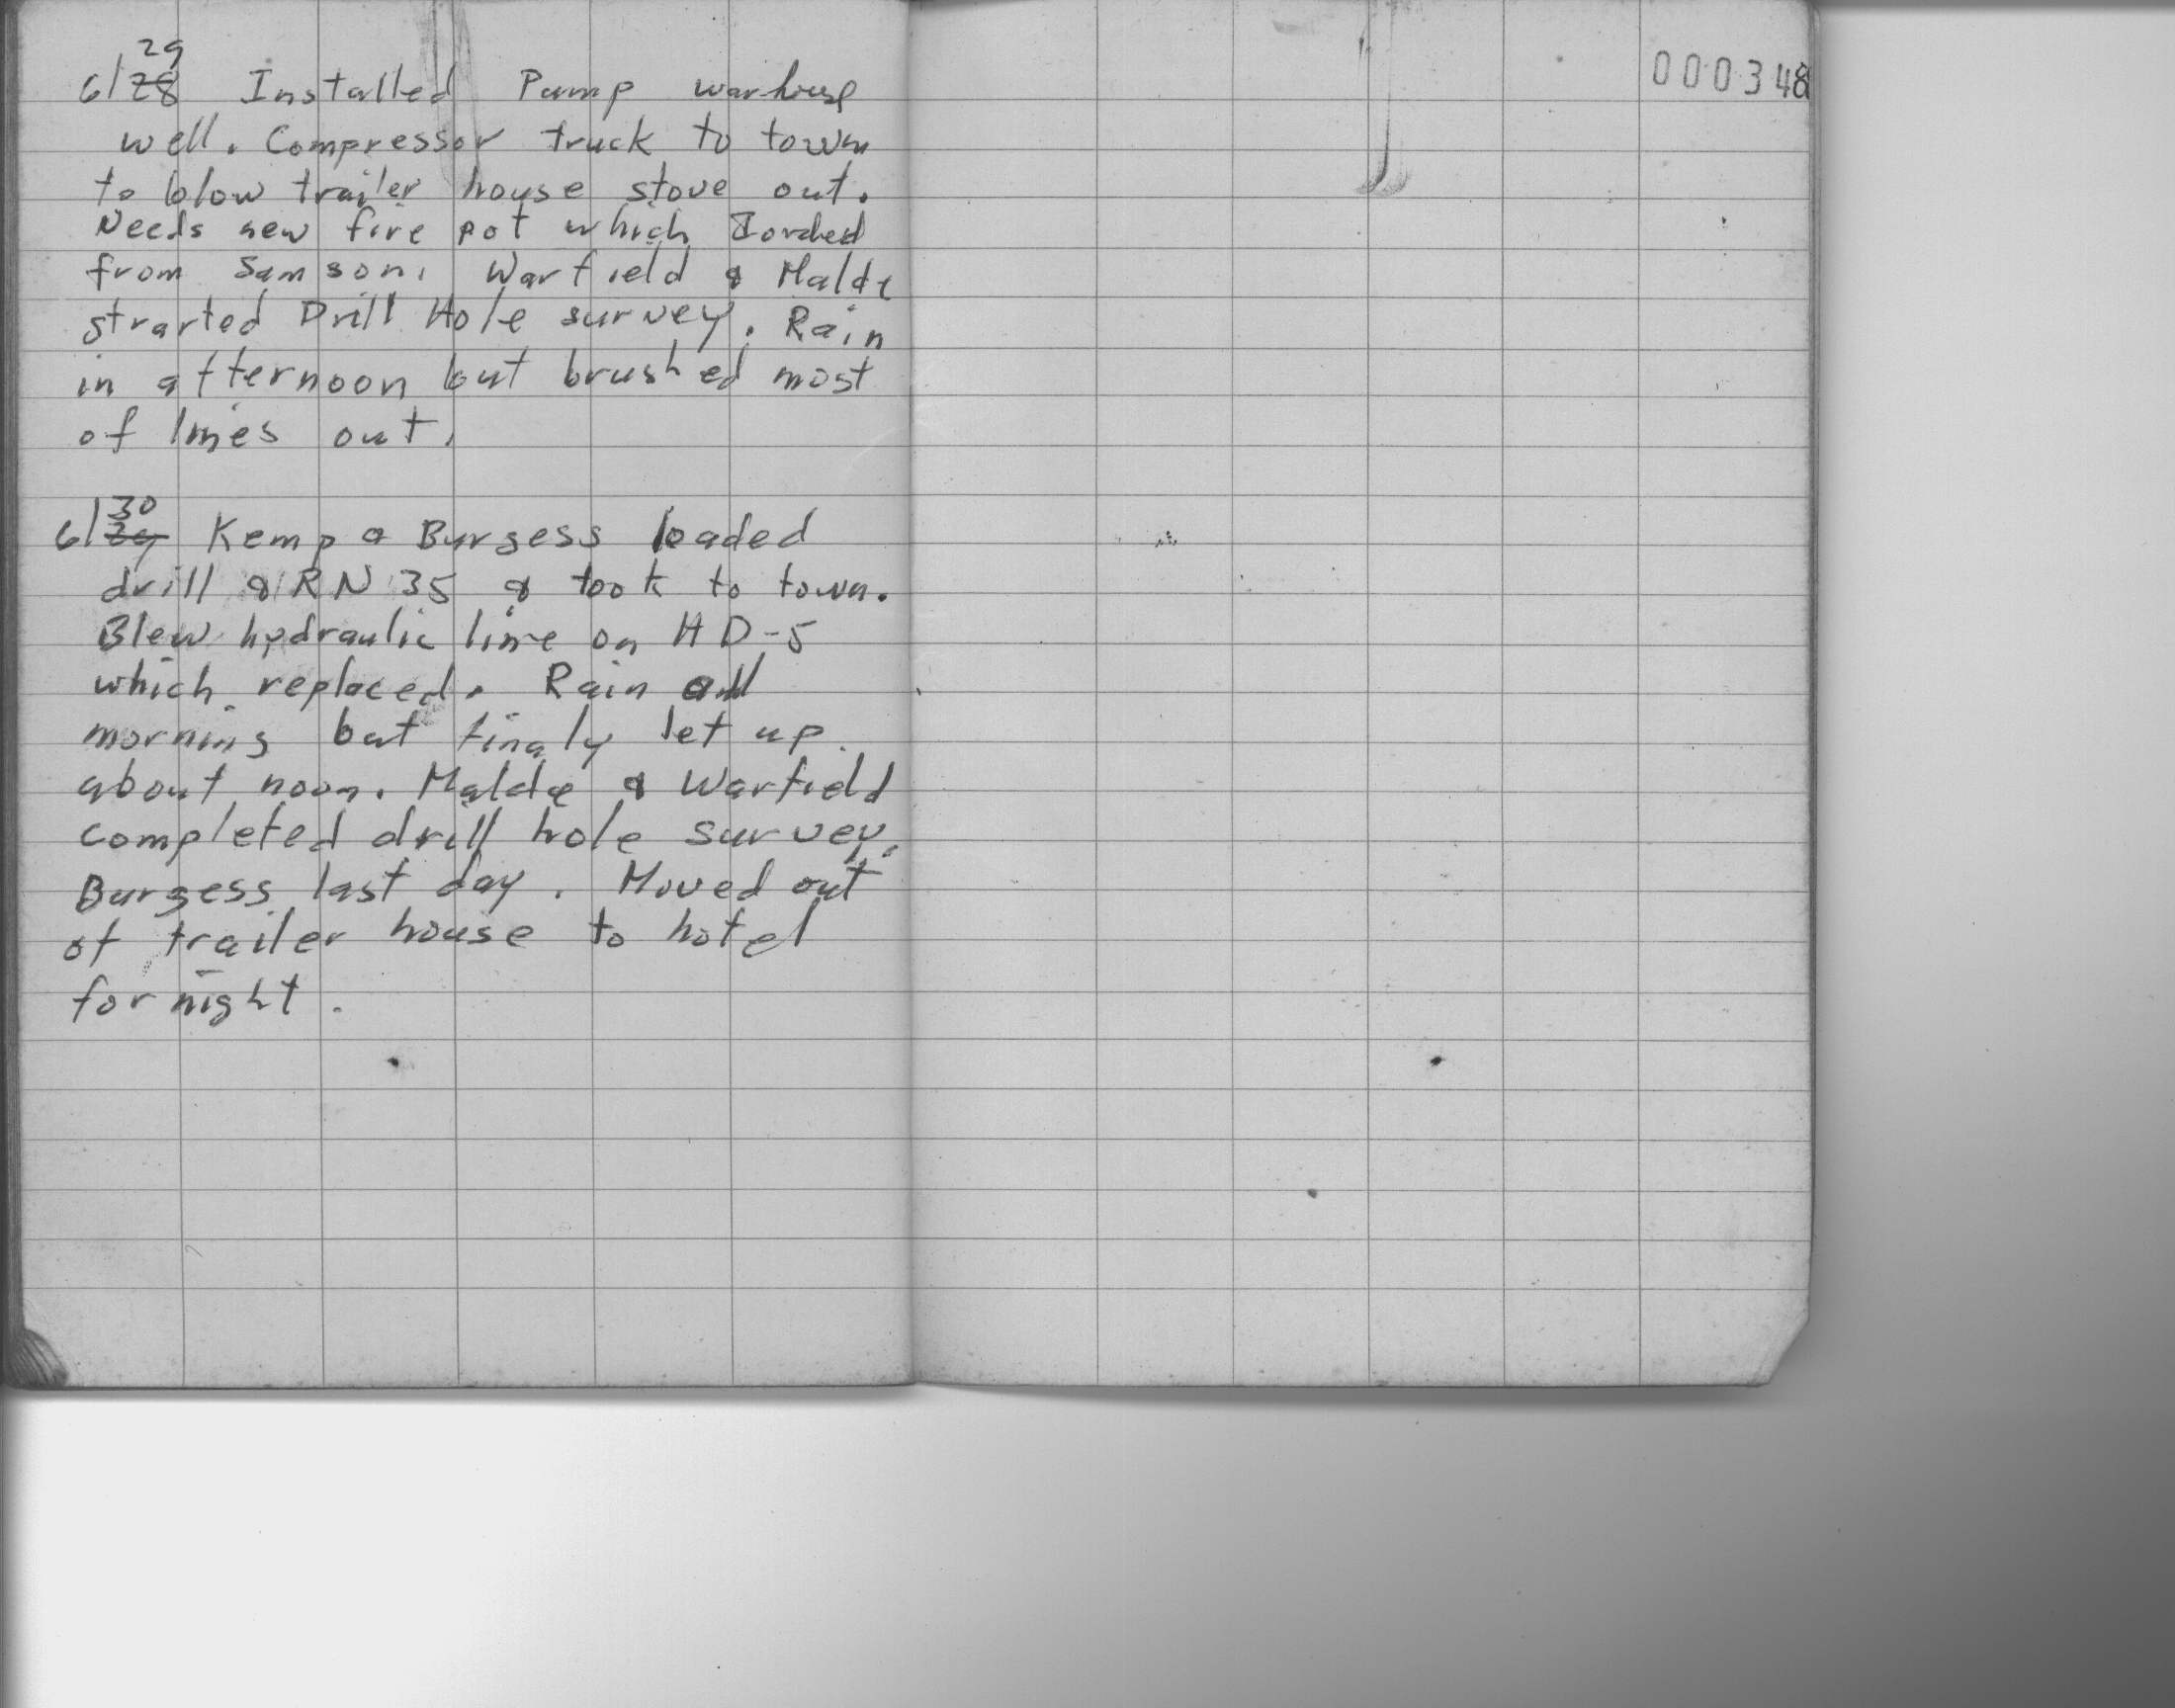 29
6/28 Installed Pump warhouse
well. Compressor truck to town
to blow trailer house stove out.
Needs new fire pot which
from Samson. Warfield & Malde
strarted Drill Hole survey. Rain
in afternoon but brushed most
of lines out.
30
6/29 Kemp & Burgess loaded
drill & RN 35 & took to town.
Blew hydraulic line on HD-5
which replaced. Rain all
morning but finaly let up
about noon. Malde & Warfield
completed drill hole survey.
Burgess last day. Moved out
of trailer house to hotel
for night.
000348